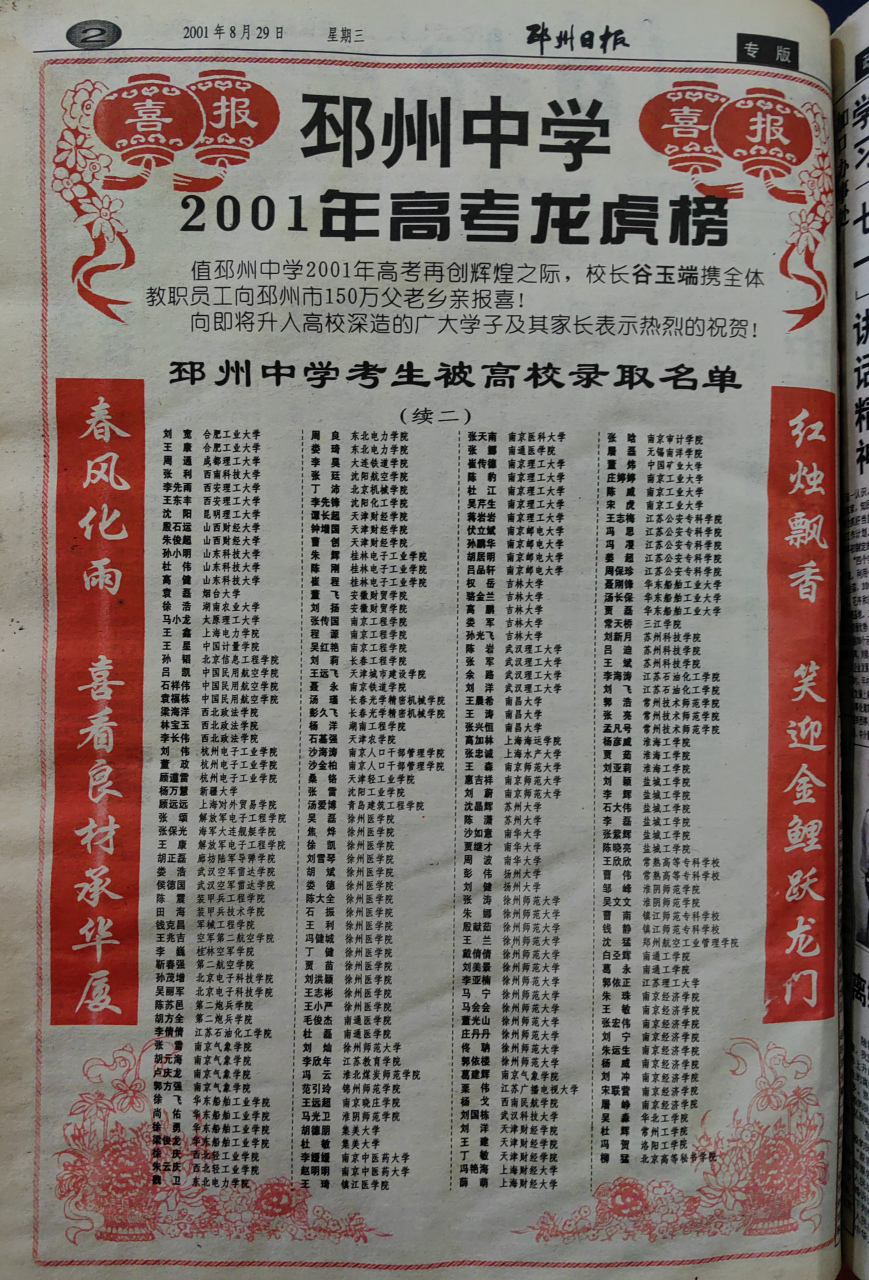 2
2001年8月29日
星期三
邳州日报
专版
喜报
喜报
邳州中学
2001年高考龙虎榜
值邳州中学2001年高考再创辉煌之际，校长谷玉端携全体
教职员工向邳州市150万父老乡亲报喜！
向即将升入高校深造的广大学子及其家长表示热烈的祝贺！
邳州中学考生被高校录取名单
（续二）
春风化雨 喜看良材承华厦
刘宽 合肥工业大学
王康 合肥工业大学
周通 成都理工大学
张利 西南科技大学
李先雨 西安理工大学
王东丰 西安理工大学
沈阳 昆明理工大学
殷石远 山西财经大学
朱俊超 山西财经大学
孙小明 山东科技大学
杜伟 山东科技大学
高健 山东科技大学
袁磊 烟台大学
徐浩 湖南农业大学
马小龙 太原理工大学
王鑫 上海电力学院
王星 中国计量学院
孙韬 北京信息工程学院
吕凯 中国民用航空学院
石祥伟 中国民用航空学院
袁福栋 中国民用航空学院
梁海洋 西北政法学院
林宝玉 西北政法学院
李长伟 西北政法学院
刘伟 杭州电子工业学院
董政 杭州电子工业学院
顾道雷 杭州电子工业学院
杨万慧 新疆大学
顾远远 上海对外贸易学院
张颂 解放军电子工程学院
张保光 海军大连舰艇学院
王康 解放军电子工程学院
胡正磊 廊坊陆军导弹学院
娄浩 武汉空军雷达学院
侯德国 武汉空军雷达学院
陈震 装甲兵工程学院
田海 装甲兵技术学院
钱克昌 军械工程学院
王兆吉 空军第二航空学院
李巍 桂林空军学院
靳春强 第二航空学院
孙茂增 北京电子科技学院
吴丽军 北京电子科技学院
陈苏邑 第二炮兵学院
胡方全 第二炮兵学院
李倩倩 江苏石油化工学院
张雷 南京气象学院
胡元海 南京气象学院
卢庆龙 南京气象学院
郭方强 南京气象学院
徐飞 华东船舶工业学院
尚佑 华东船舶工业学院
徐勇 华东船舶工业学院
梁俊龙 华东船舶工业学院
徐庆 西北轻工业学院
朱云庆 西北轻工业学院
魏卫 东北电力学院
周良 东北电力学院
娄琦 东北电力学院
李昊 大连铁道学院
张廷 沈阳航空学院
丁沛 北京机械学院
李先锋 沈阳化工学院
谭长超 天津财经学院
钟增国 天津财经学院
曹创 天津财经学院
朱辉 桂林电子工业学院
陈刚 桂林电子工业学院
崔程 桂林电子工业学院
董飞 安徽财贸学院
刘扬 安徽财贸学院
张传国 南京工程学院
程源 南京工程学院
吴红艳 南京工程学院
刘莉 长春工程学院
王远飞 天津城市建设学院
聂永 南京铁道学院
汤瑾 长春光学精密机械学院
彭久飞 长春光学精密机械学院
杨洋 湖南工程学院
石基强 天津农学院
沙海涛 南京人口干部管理学院
沙金柏 南京人口干部管理学院
桑铬 天津轻工业学院
张雷 沈阳工业学院
汤爱博 青岛建筑工程学院
吴磊 徐州医学院
焦烨 徐州医学院
徐凯 徐州医学院
刘雪琴 徐州医学院
胡斌 徐州医学院
娄德 徐州医学院
陈大全 徐州医学院
石振 徐州医学院
王利 徐州医学院
冯健城 徐州医学院
丁健 徐州医学院
贾苗 徐州医学院
刘洪颖 徐州医学院
王志彬 徐州医学院
王小严 徐州医学院
毛俊杰 南通医学院
杜磊 南通医学院
刘灿 徐州师范大学
李欣年 江苏教育学院
冯云 淮北煤炭师范学院
范引玲 锦州师范学院
王远超 南京晓庄学院
马光卫 淮阴师范学院
胡德朋 集美大学
杜敏 集美大学
李媛媛 南京中医药大学
赵明明 南京中医药大学
王琦 镇江医学院
张天南 南京医科大学
张娜 南通医学院
崔传德 南京理工大学
陈豹 南京理工大学
杜江 南京理工大学
吴芹生 南京理工大学
蒋岩岩 南京理工大学
伏立斌 南京邮电大学
孙鹏华 南京邮电大学
胡居明 南京邮电大学
吕品轩 南京邮电大学
权岳 吉林大学
骆金兰 吉林大学
高鹏 吉林大学
娄军 吉林大学
孙光飞 吉林大学
陈岩 武汉理工大学
张军 武汉理工大学
余路 武汉理工大学
刘洋 武汉理工大学
王晨希 南昌大学
王涛 南昌大学
张兴恒 南昌大学
高加林 上海海运学院
张忠诚 上海水产大学
王淼 南京师范大学
惠吉祥 南京师范大学
刘蔚 南京师范大学
沈晶辉 苏州大学
陈潇 苏州大学
沙如意 南华大学
贾继才 南华大学
周波 南华大学
彭伟 扬州大学
刘健 扬州大学
张涛 徐州师范大学
朱娜 徐州师范大学
殷献茹 徐州师范大学
王兰 徐州师范大学
戴倩倩 徐州师范大学
刘美景 徐州师范大学
李亚楠 徐州师范大学
马宁 徐州师范大学
马会会 徐州师范大学
董光山 徐州师范大学
庄丹丹 徐州师范大学
佟聃 徐州师范大学
郭依楼 徐州师范大学
葛建辉 南京气象学院
栗伟 江苏广播电视大学
杨戈 西南民航学院
刘国栋 武汉科技大学
刘洋 天津财经学院
王建 天津财经学院
丁敏 天津财经学院
冯艳海 上海财经大学
薛萌 上海财经大学
张晗 南京审计学院
屠磊 无锡南洋学院
董炜 中国矿业大学
庄婷婷 南京工业大学
陈威 南京工业大学
宋虎 南京工业大学
王志梅 江苏公安专科学院
冯思 江苏公安专科学院
冯澄 江苏公安专科学院
娄超 江苏公安专科学院
周保珍 江苏公安专科学院
聂刚锋 华东船舶工业大学
汤长保 华东船舶工业大学
贾磊 华东船舶工业大学
常天桥 三江学院
刘新月 苏州科技学院
吕迪 苏州科技学院
王斌 苏州科技学院
李海涛 江苏石油化工学院
刘飞 江苏石油化工学院
郭浩 常州技术师范学院
张亮 常州技术师范学院
孟凡号 常州技术师范学院
杨彦威 淮海工学院
贾茹 淮海工学院
刘亚莉 淮海工学院
刘颖 盐城工学院
李辉 盐城工学院
石大伟 盐城工学院
李磊 盐城工学院
张紫辉 盐城工学院
陈晓亮 盐城工学院
王欣欣 常熟高等专科学校
曹伟 常熟高等专科学校
邹峰 淮阴师范学院
吴文文 淮阴师范学院
曹南 镇江师范专科学校
钱静 镇江师范专科学校
沈猛 郑州航空工业管理学院
白圣辉 南通工学院
葛永 南通工学院
郭依正 江苏理工大学
朱珠 南京经济学院
王敏 南京经济学院
张宏伟 南京经济学院
刘宁 南京经济学院
朱远生 南京经济学院
杨威 南京经济学院
刘冲 南京经济学院
宋联营 南京经济学院
屠峥 南京经济学院
吴淼 华北工学院
杜辉 常州工学院
冯贺 洛阳工学院
柳猛 北京高等秘书学院
红烛飘香 笑迎金鲤跃龙门